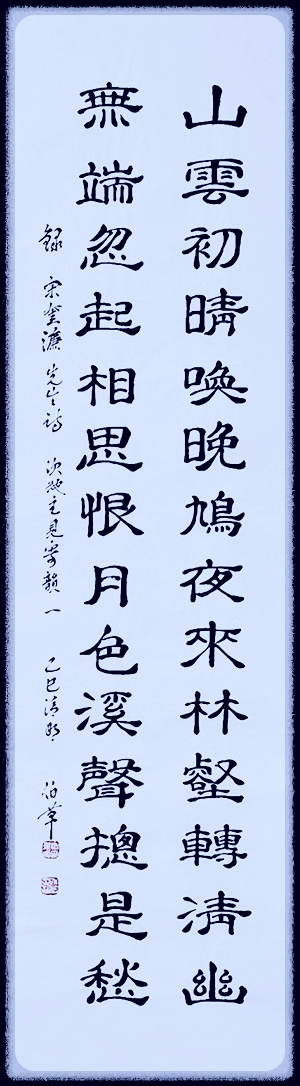 山雲初晴喚晚鳩夜來林壑轉清幽
無端忽起相思恨月色溪聲摠是愁
錄宋登濂先生詩 次破主見寄韻一 乙巳清明 伯華